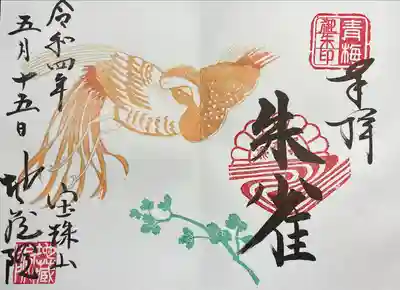 青梅
御朱印
奉拝
朱雀
宝珠山
地蔵院
令和四年
五月十五日